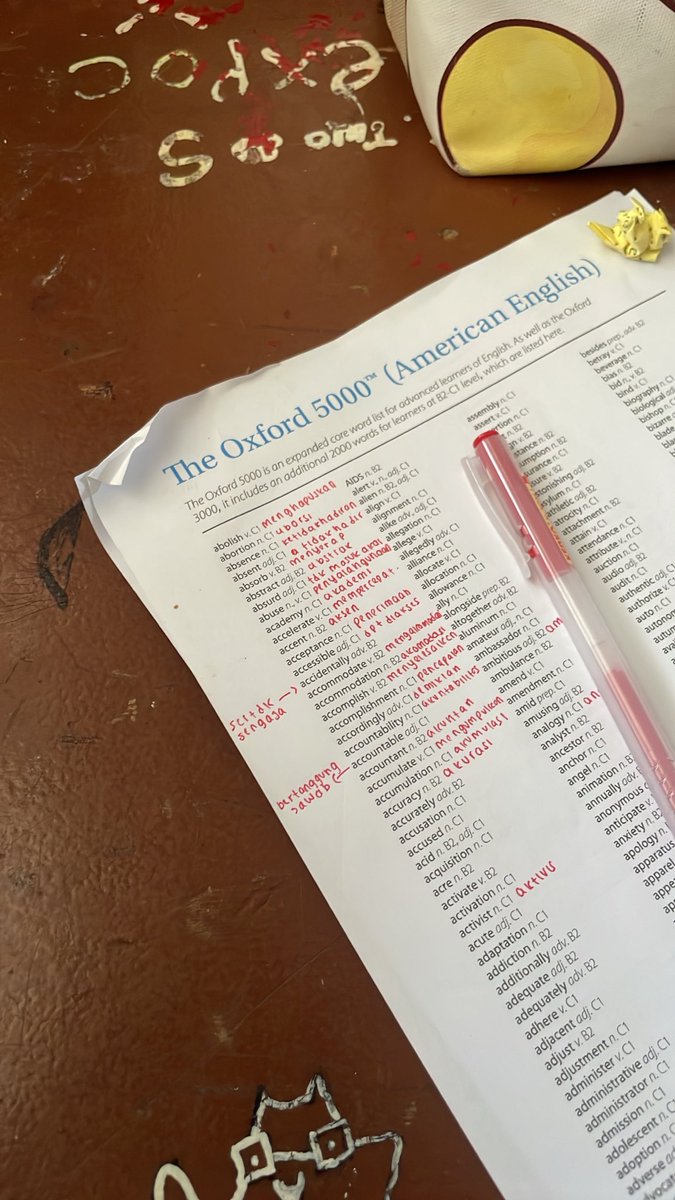 The Oxford 5000™ (American English)
The Oxford 5000 is an expanded core word list for advanced learners of English. As well as the Oxford
3000, it includes an additional 2000 words for learners at B2-C1 level, which are listed here.
abolish v. C1 menghapuskan
abortion n. C1 aborsi
absence n. C1 ketidakhadiran
absent adj. C1 tidak hadir
absorb v. B2 menyerap
abstract adj. B2 abstrak
absurd adj. C1 tdk masuk akal
abuse n., v. C1 penyalahgunaan
academy n. C1 akademi
accelerate v. C1 mempercepat
accent n. B2 aksen
acceptance n. C1 penerimaan
accessible adj. C1 dpt diakses
accidentally adv. B2
scr tdk
sengaja
accommodate v. B2
accommodation n. B2 akomodasi
accomplish v. B2 menyelesaikan
accomplishment n. C1
accordingly adv. C1 demikian
accountability n. C1 akuntabilitas
accountable adj. C1
bertanggung
jawab
accountant n. B2 akuntan
accumulate v. C1 mengumpulkan
accumulation n. C1 akumulasi
accuracy n. B2 akurasi
accurately adv. B2
accusation n. C1
accused n. C1
acid n. B2, adj. C1
acquisition n. C1
acre n. B2
activate v. B2
activation n. C1
activist n. C1 aktivis
acute adj. C1
adaptation n. C1
addiction n. B2
additionally adv. B2
adequate adj. B2
adequately adv. B2
adhere v. C1
adjacent adj. C1
adjust v. B2
adjustment n. C1
administer v. C1
administrative adj. C1
administrator n. C1
admission n. C1
adolescent n. C1
adoption n. C1
adverse
AIDS n. B2
alert v., n., adj. C1
alien n. B2, adj. C1
align v. C1
alignment n. C1
alike adv., adj. C1
allegation n. C1
allege v. C1
allegedly adv. C1
alliance n. C1
allocate v. C1
allocation n. C1
allowance n. C1
ally n. C1
alongside prep. B2
altogether adv. B2
aluminum n. C1
amateur adj., n. C1
ambassador n. C1
ambitious adj. B2 am
ambulance n. B2
amend v. C1
amendment n. C1
amid prep. C1
amusing adj. B2
analogy n. C1 an
analyst n. B2
ancestor n. B2
anchor n. C1
angel n. C1
animation n. B2
annually adv.
anonymous
anticipate v.
anxiety n. B2
apology n.
apparatus
apparel
assembly n. C1
assert v. C1
astonishing adj. B2
asylum n. C1
athletic adj. B2
atrocity n. C1
attachment n. B2
attain v. C1
attendance n. C1
attribute v., n. C1
auction n. C1
audio adj. B2
audit n. C1
authentic adj. C1
authorize v. C1
auto n. C1
besides prep., adv. B2
betray v. C1
beverage n. C1
bias n. B2
bid n., v. B2
bind v. C1
biography n. C1
biological
bishop n.
bizarre
blade